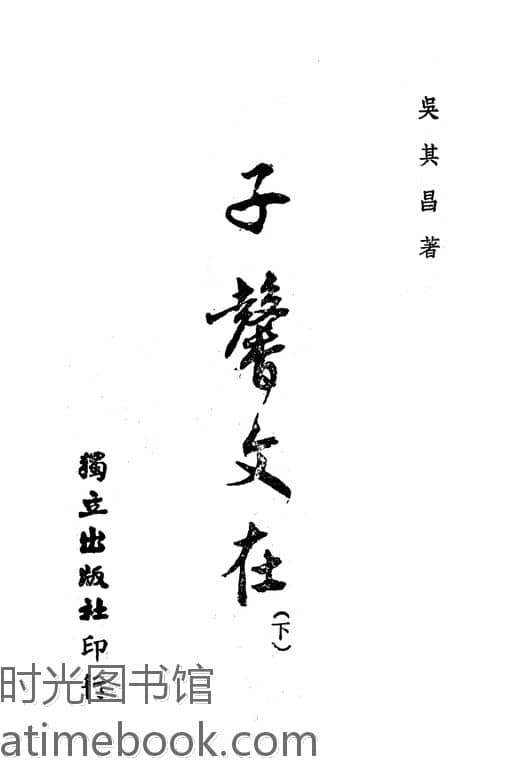 吳其昌著
子馨文在
(下)
獨立出版社印
时光图书馆
atimebook.com